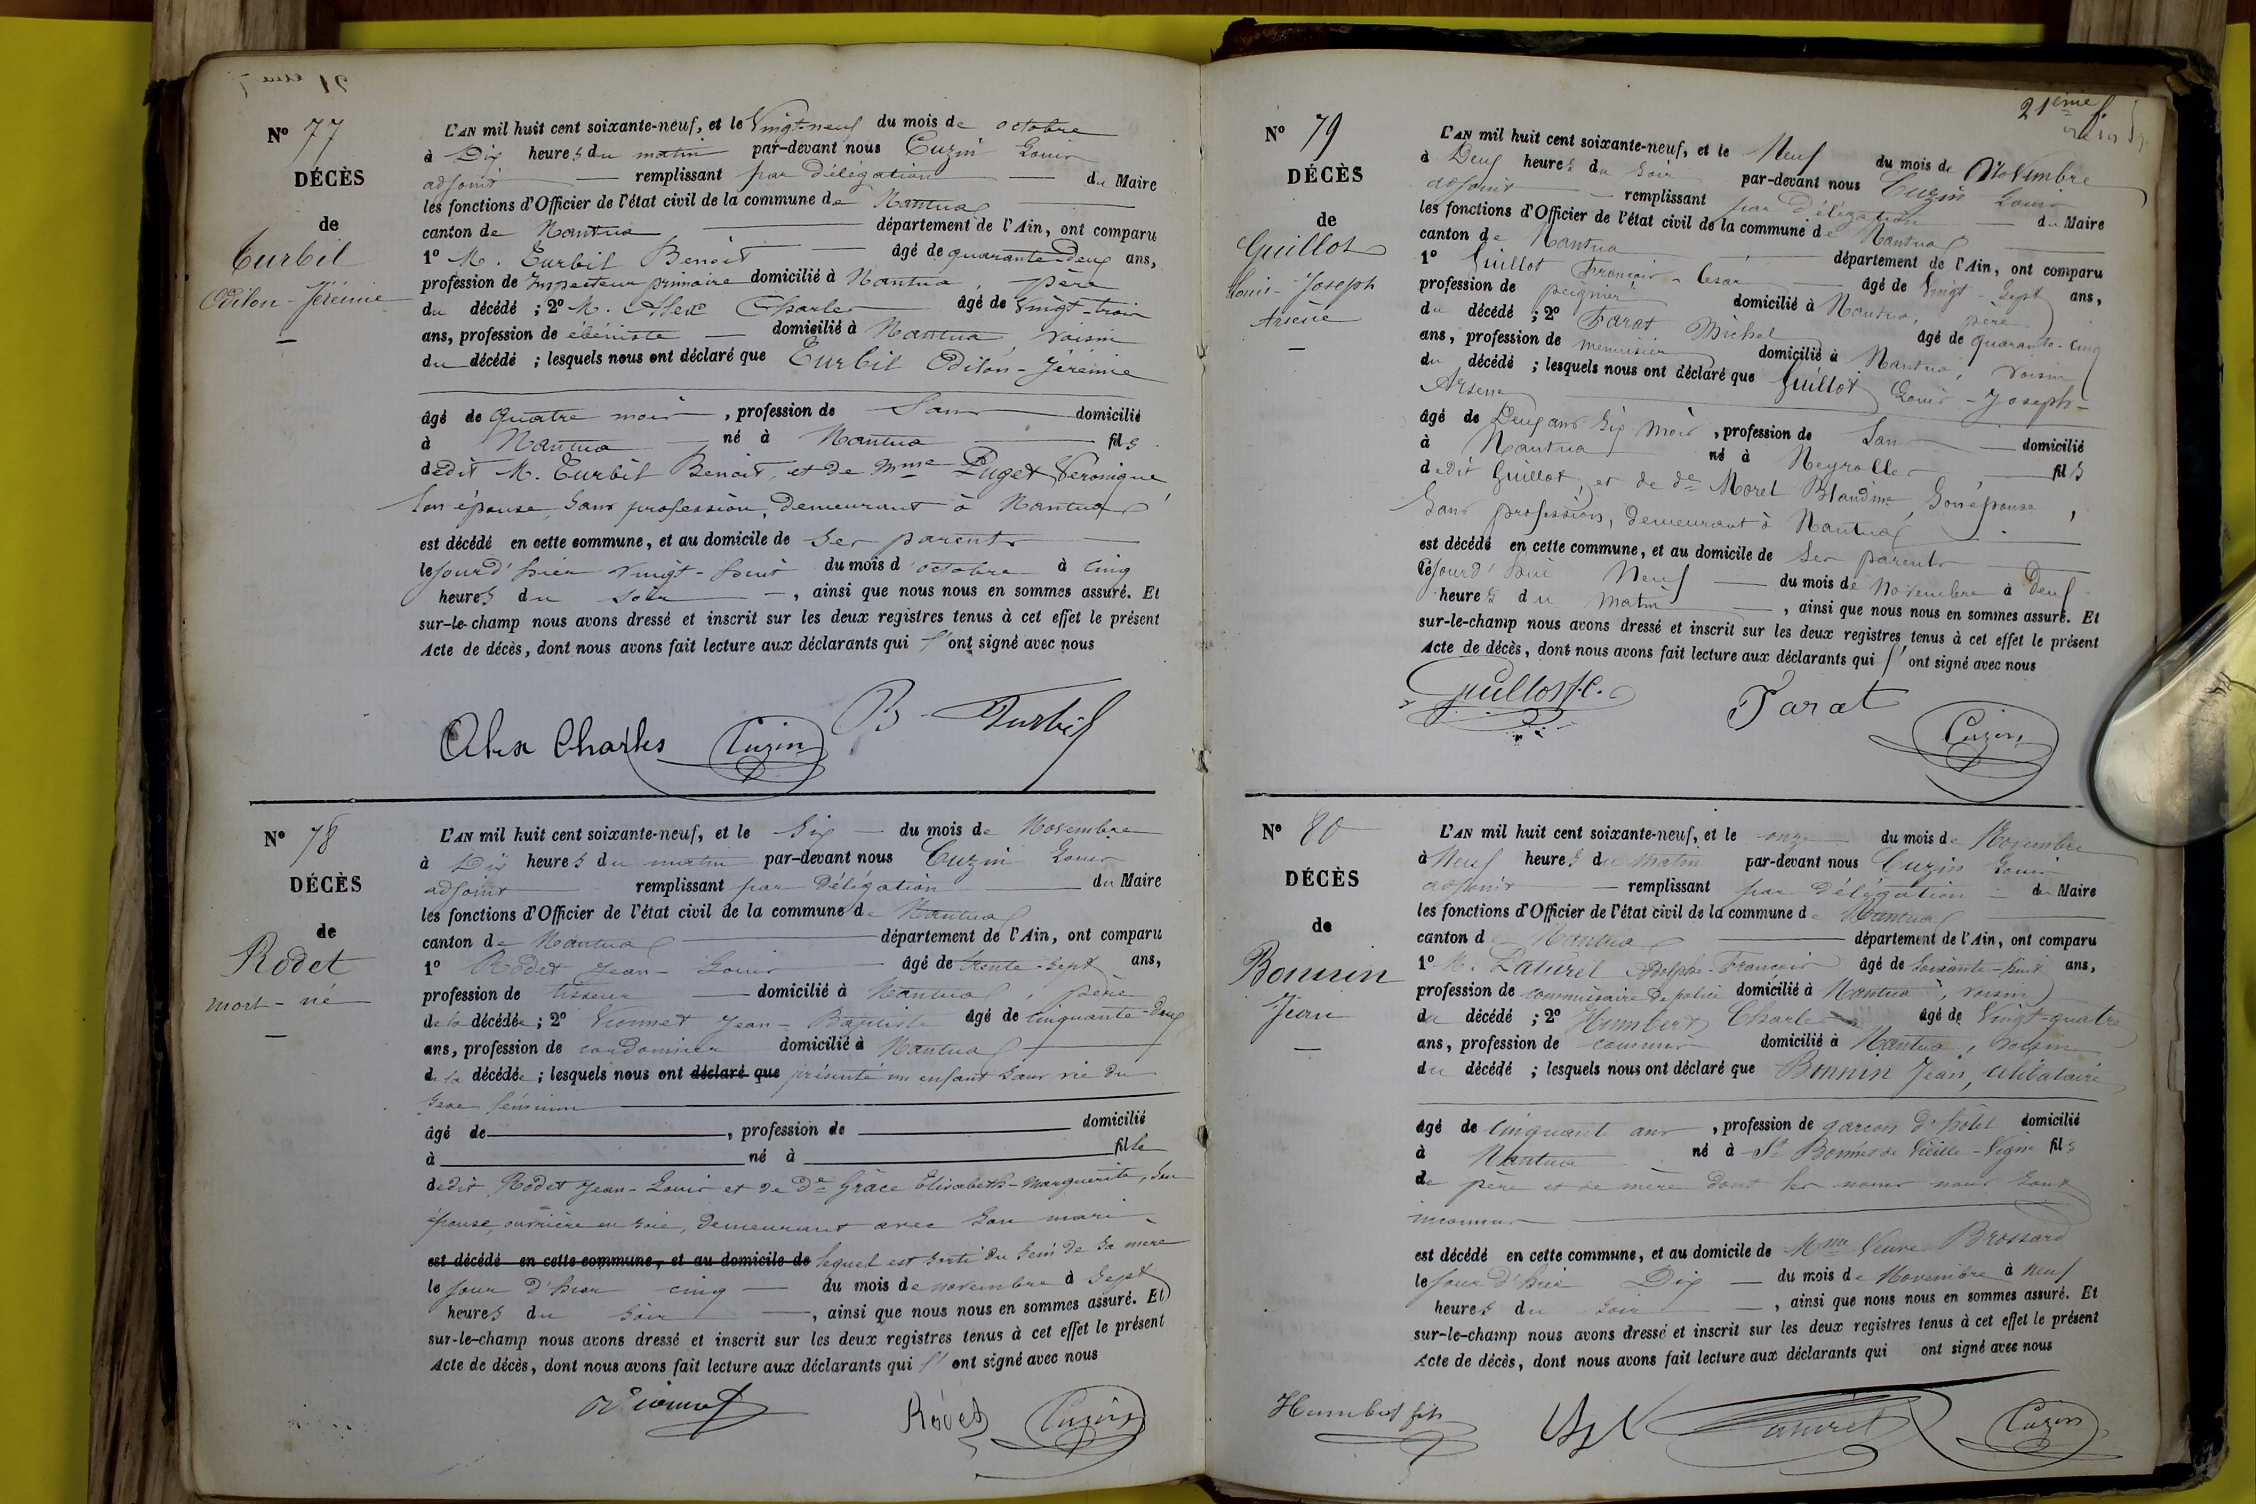 N° 77
DÉCÈS
de
Turbil
Odilon - Jérémie
L'AN mil huit cent soixante-neuf, et le Vingt-neuf du mois de octobre
à Dix heures du matin par-devant nous Cuzin Louis
adjoint remplissant par délégation du Maire
les fonctions d'Officier de l'état civil de la commune de Nantua
canton de Nantua département de l'Ain, ont comparu
1° M. Turbil Benoit âgé de quarante-deux ans,
profession de Inspecteur primaire domicilié à Nantua, père
du décédé ; 2° M. Alex Charles âgé de vingt-trois
ans, profession de ébéniste domicilié à Nantua, voisin
du décédé ; lesquels nous ont déclaré que Turbil Odilon - Jérémie
âgé de quatre mois, profession de Sans domicilié
à Nantua né à Nantua fils
dedit M. Turbil Benoit, et de Mme Puget Veronique
son épouse, sans profession, demeurant à Nantua
est décédé en cette commune, et au domicile de ses parents
le jour d'hier vingt-huit du mois d'octobre à cinq
heures du soir, ainsi que nous nous en sommes assuré. Et
sur-le-champ nous avons dressé et inscrit sur les deux registres tenus à cet effet le présent
Acte de décès, dont nous avons fait lecture aux déclarants qui l'ont signé avec nous
Alex Charles Cuzin B. Turbil
N° 78
DÉCÈS
de
Rodet
mort - né
L'AN mil huit cent soixante-neuf, et le Six du mois de Novembre
à Dix heures du matin par-devant nous Cuzin Louis
adjoint remplissant par délégation du Maire
les fonctions d'Officier de l'état civil de la commune de Nantua
canton de Nantua département de l'Ain, ont comparu
1° Rodet Jean - Louis âgé de trente-sept ans,
profession de tisseur domicilié à Nantua, père
de la décédée ; 2° Vionnet Jean - Baptiste âgé de cinquante-deux
ans, profession de cordonnier domicilié à Nantua
de la décédée ; lesquels nous ont déclaré que présenté un enfant sans vie du
sexe féminin
âgé de , profession de domicilié
à né à fille
dedit Rodet Jean - Louis et de De Grâce Elisabeth - Marguerite, son
épouse, ouvrière en soie, demeurant avec son mari
est décédé en cette commune, et au domicile de lequel est sorti du sein de sa mère
le jour d'hier cinq du mois de novembre à Sept
heures du soir, ainsi que nous nous en sommes assuré. Et
sur-le-champ nous avons dressé et inscrit sur les deux registres tenus à cet effet le présent
Acte de décès, dont nous avons fait lecture aux déclarants qui l'ont signé avec nous
Vionnet Rodet Cuzin
21ème f.
N° 79
DÉCÈS
de
Guillot
Louis - Joseph
Arsène
L'AN mil huit cent soixante-neuf, et le Neuf du mois de Novembre
à Deux heures du soir par-devant nous Cuzin Louis
adjoint remplissant par délégation du Maire
les fonctions d'Officier de l'état civil de la commune de Nantua
canton de Nantua département de l'Ain, ont comparu
1° Guillot François - Cesar âgé de vingt-sept ans,
profession de peignier domicilié à Nantua, père
du décédé ; 2° Farat Michel âgé de quarante-cinq
ans, profession de menuisier domicilié à Nantua, voisin
du décédé ; lesquels nous ont déclaré que Guillot Louis - Joseph -
Arsène
âgé de Deux ans six mois, profession de Sans domicilié
à Nantua né à Neyrolles fils
dedit Guillot et de de Morel Blandine, son épouse,
sans profession, demeurant à Nantua
est décédé en cette commune, et au domicile de ses parents
le jourd'hui Neuf du mois de Novembre à Deux
heures du matin, ainsi que nous nous en sommes assuré. Et
sur-le-champ nous avons dressé et inscrit sur les deux registres tenus à cet effet le présent
Acte de décès, dont nous avons fait lecture aux déclarants qui l'ont signé avec nous
Guillot f.c. Farat Cuzin
N° 80
DÉCÈS
de
Bonnin
Jean
L'AN mil huit cent soixante-neuf, et le onze du mois de Novembre
à Neuf heures du matin par-devant nous Cuzin Louis
adjoint remplissant par délégation du Maire
les fonctions d'Officier de l'état civil de la commune de Nantua
canton de Nantua département de l'Ain, ont comparu
1° M. Laturel Adolphe - François âgé de soixante-huit ans,
profession de commissaire de police domicilié à Nantua, voisin
du décédé ; 2° Humbert Charles âgé de Vingt-quatre
ans, profession de commis domicilié à Nantua, voisin
du décédé ; lesquels nous ont déclaré que Bonnin Jean, célibataire
âgé de cinquante ans, profession de garçon d'hôtel domicilié
à Nantua né à St Bonnet de Vieille - Vigne fils
de père et de mère dont les noms nous sont
inconnus
est décédé en cette commune, et au domicile de Mme Veuve Brossard
le jour d'hier Dix du mois de Novembre à neuf
heures du soir, ainsi que nous nous en sommes assuré. Et
sur-le-champ nous avons dressé et inscrit sur les deux registres tenus à cet effet le présent
Acte de décès, dont nous avons fait lecture aux déclarants qui ont signé avec nous
Humbert fils Laturel Cuzin